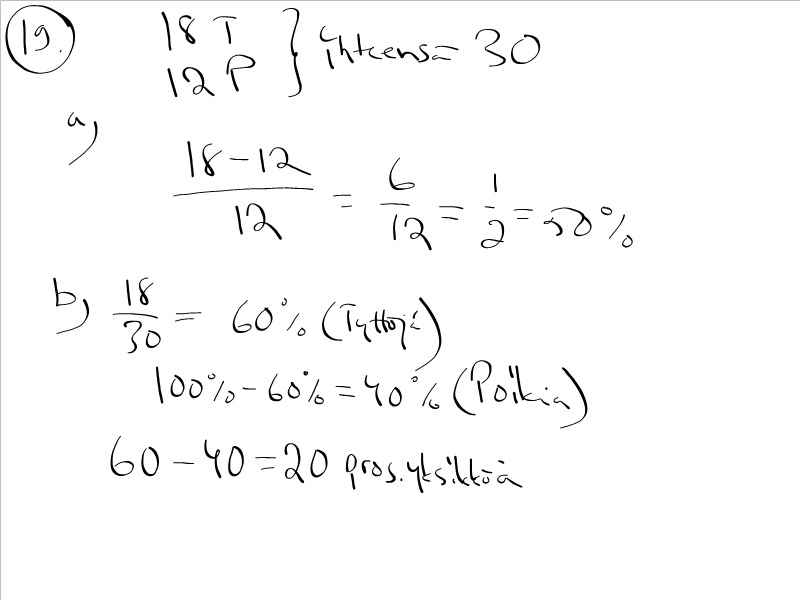 19.
18 T
12 P } Yhteensä = 30
a)
18 - 12 / 12 = 6/12 = 1/2 = 50%
b) 18/30 = 60% (Tyttöjä)
100% - 60% = 40% (Poikia)
60 - 40 = 20 pros.yksikköä